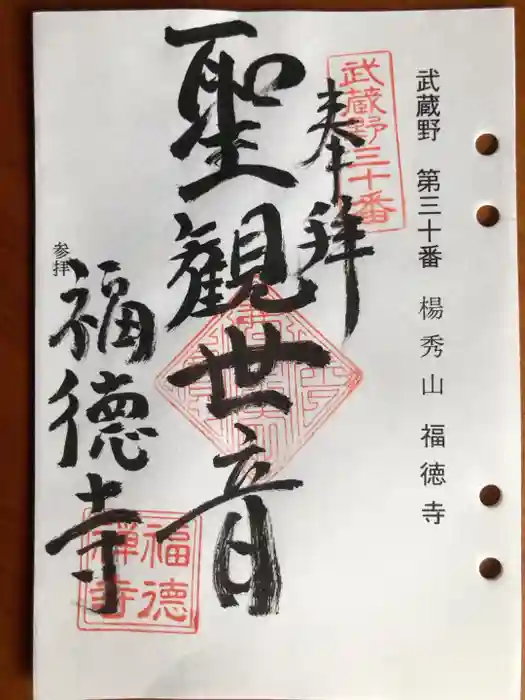 武蔵野 第三十番 楊秀山 福徳寺
武蔵野三十番
奉拝
聖観世音
参拝
福徳寺
福徳
禅寺